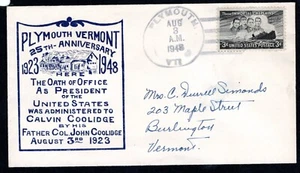 PLYMOUTH VERMONT
25TH-ANNIVERSARY
1923 1948
HERE
THE OATH OF OFFICE
AS PRESIDENT
OF THE
UNITED STATES
WAS ADMINISTERED TO
CALVIN COOLIDGE
BY HIS
FATHER COL. JOHN COOLIDGE
AUGUST 3RD 1923
PLYMOUTH
AUG
3
A.M.
1948
VT
3¢ UNITED STATES POSTAGE 3¢
Mrs. C. Durrell Simonds
203 Maple Street
Burlington
Vermont.